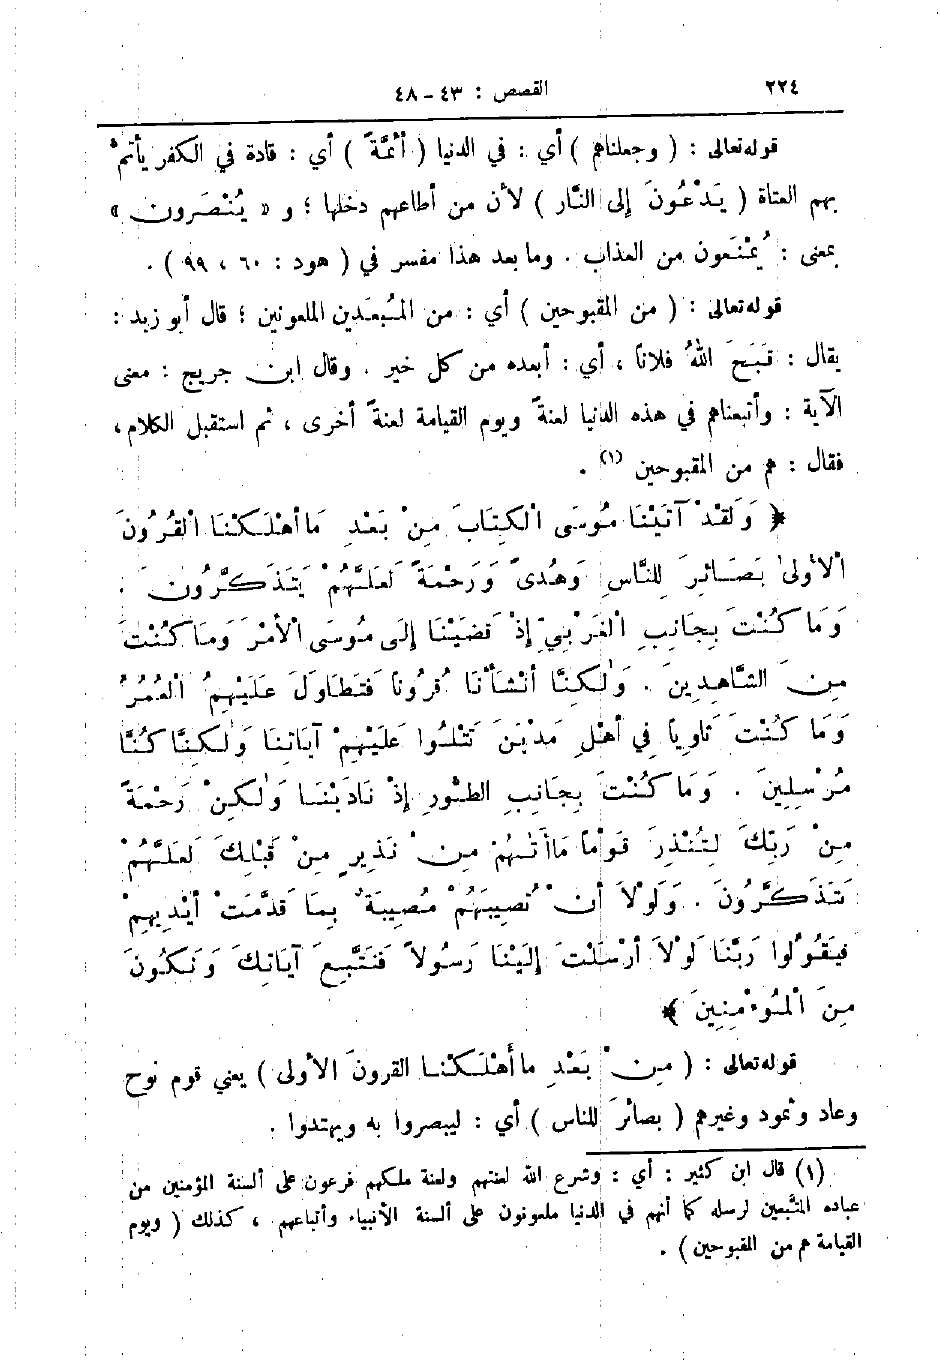 ٢٢٤ القصص : ٤٣ – ٤٨
قوله تعالى : ( وجعلناهم ) أي : في الدنيا ( أَئمَّةً ) أي : قادة في الكفر يأتمُّ
بهم العتاة ( يَدْعُونَ إلى النَّار ) لأن من أطاعهم دخلها ؛ و « يُنْصَرون »
بمعنى : يُمْنَعون من العذاب . وما بعد هذا مفسر في ( هود : ٦٠ ، ٩٩ ) .
قوله تعالى : ( من المقبوحين ) أي : من المُبعَدين الملعونين ؛ قال أبو زيد :
يقال : قَبَحَ اللهُ فلاناً ، أي : أبعده من كل خير . وقال ابن جريج : معنى
الآية : وأتبعناهم في هذه الدنيا لعنةً ويوم القيامة لعنةً أخرى ، ثم استقبل الكلام ،
فقال : هم من المقبوحين (١) .
﴿ وَلَقَدْ آتَيْنَا مُوسَى الْكِتَابَ مِنْ بَعْدِ مَا أَهْلَكْنَا الْقُرُونَ
الْأُولىٰ بَصَائِرَ لِلنَّاسِ وَهُدىً وَرَحْمَةً لَعَلَّهُمْ يَتَذَكَّرُونَ .
وَمَا كُنْتَ بِجَانِبِ الْغَرْبِيِّ إِذْ قَضَيْنَا إِلَى مُوسَى الْأَمْرَ وَمَا كُنْتَ
مِنَ الشَّاهِدِينَ . وَلٰكِنَّا أَنْشَأْنَا قُرُوناً فَتَطَاوَلَ عَلَيْهِمُ الْعُمُرُ
وَمَا كُنْتَ ثَاوِياً فِي أَهْلِ مَدْيَنَ تَتْلُوا عَلَيْهِمْ آيَاتِنَا وَلٰكِنَّا كُنَّا
مُرْسِلِينَ . وَمَا كُنْتَ بِجَانِبِ الطُّورِ إِذْ نَادَيْنَا وَلٰكِنْ رَحْمَةً
مِنْ رَبِّكَ لِتُنْذِرَ قَوْماً مَا أَتَاهُمْ مِنْ نَذِيرٍ مِنْ قَبْلِكَ لَعَلَّهُمْ
يَتَذَكَّرُونَ . وَلَوْلَا أَنْ تُصِيبَهُمْ مُصِيبَةٌ بِمَا قَدَّمَتْ أَيْدِيهِمْ
فَيَقُولُوا رَبَّنَا لَوْلَا أَرْسَلْتَ إِلَيْنَا رَسُولاً فَنَتَّبِعَ آيَاتِكَ وَنَكُونَ
مِنَ الْمُؤْمِنِينَ ﴾
قوله تعالى : ( مِنْ بَعْدِ ما أَهْلَكْنا القرونَ الأولى ) يعني قوم نوح
وعاد وثمود وغيرهم ( بصائرَ للناس ) أي : ليبصروا به ويهتدوا .
(١) قال ابن كثير : أي : وشرع الله لعنتهم ولعنة ملكهم فرعون على ألسنة المؤمنين من
عباده المتَّبعين لرسله كما أنهم في الدنيا ملعونون على ألسنة الأنبياء وأتباعهم ، كذلك ( ويوم
القيامة هم من المقبوحين ) .